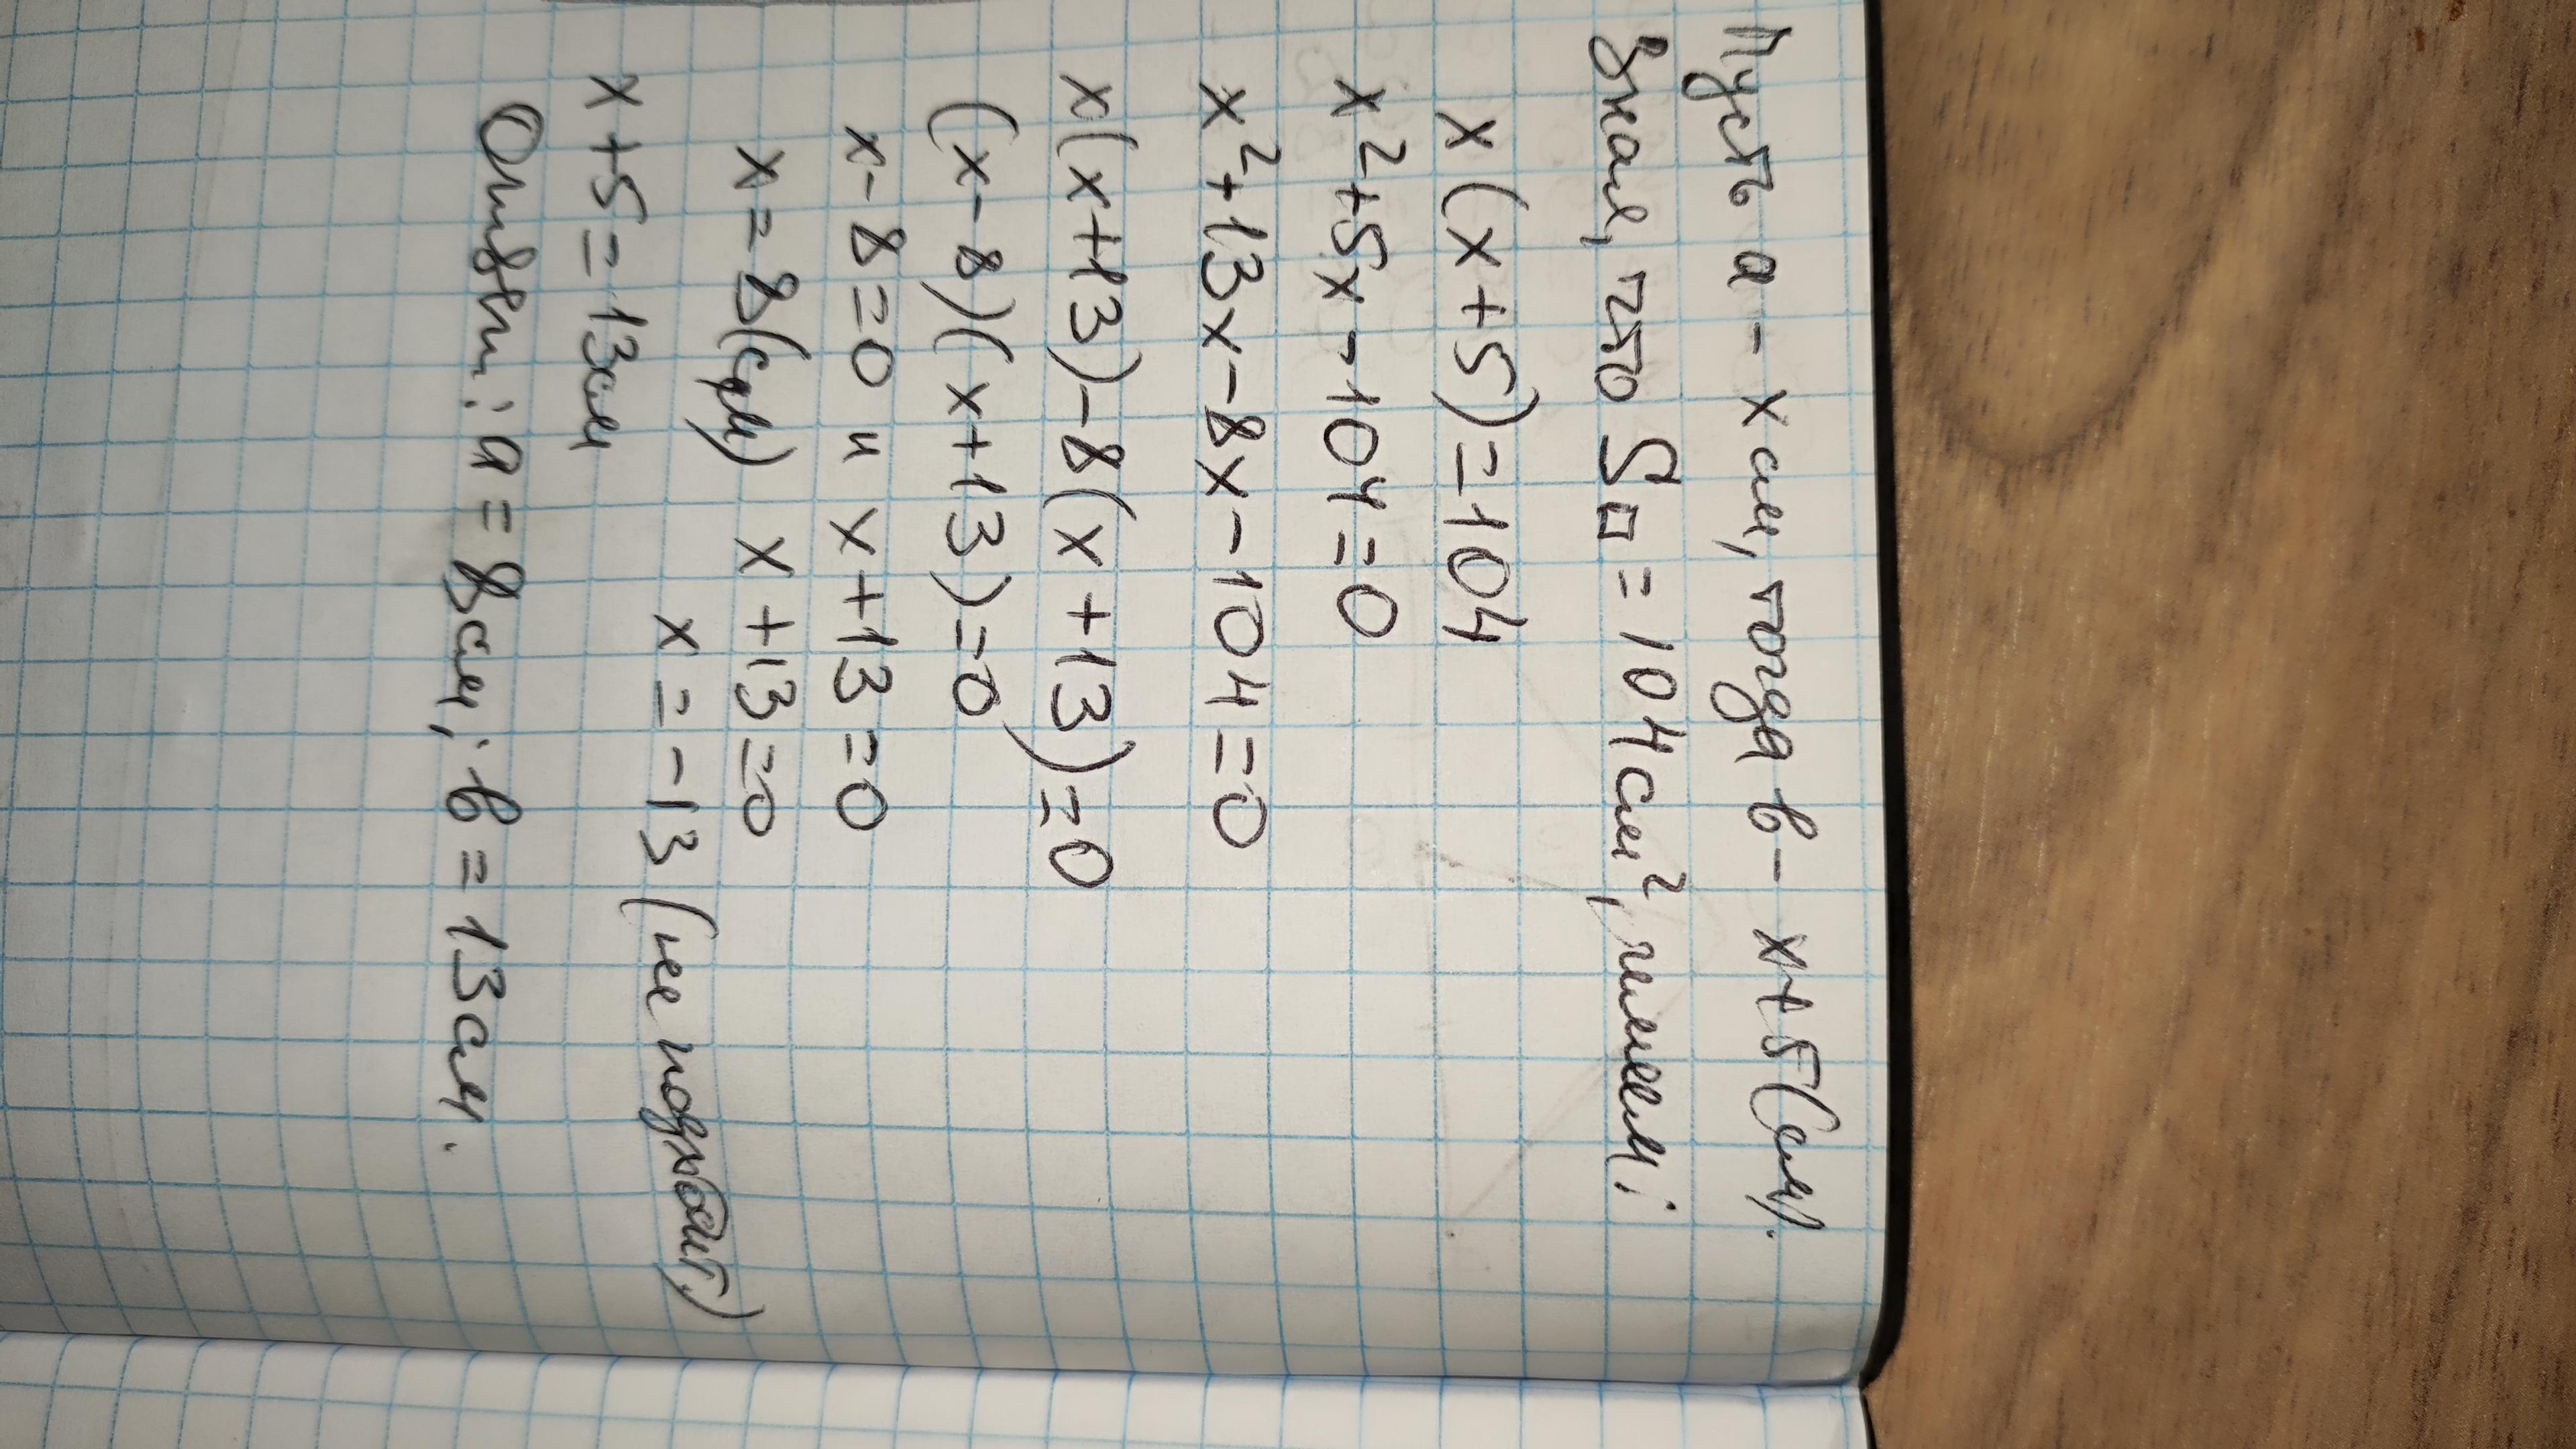 Пусть a - x см, тогда в - x+5(см).
Зная, что S□ = 104см², имеем:
x(x+5)=104
x²+5x-104=0
x²+13x-8x-104=0
x(x+13)-8(x+13)=0
(x-8)(x+13)=0
x-8=0 и x+13=0
x=8(см) x+13=0
x=-13 (не подходит)
x+5=13см
Ответ: a=8см; в=13см.